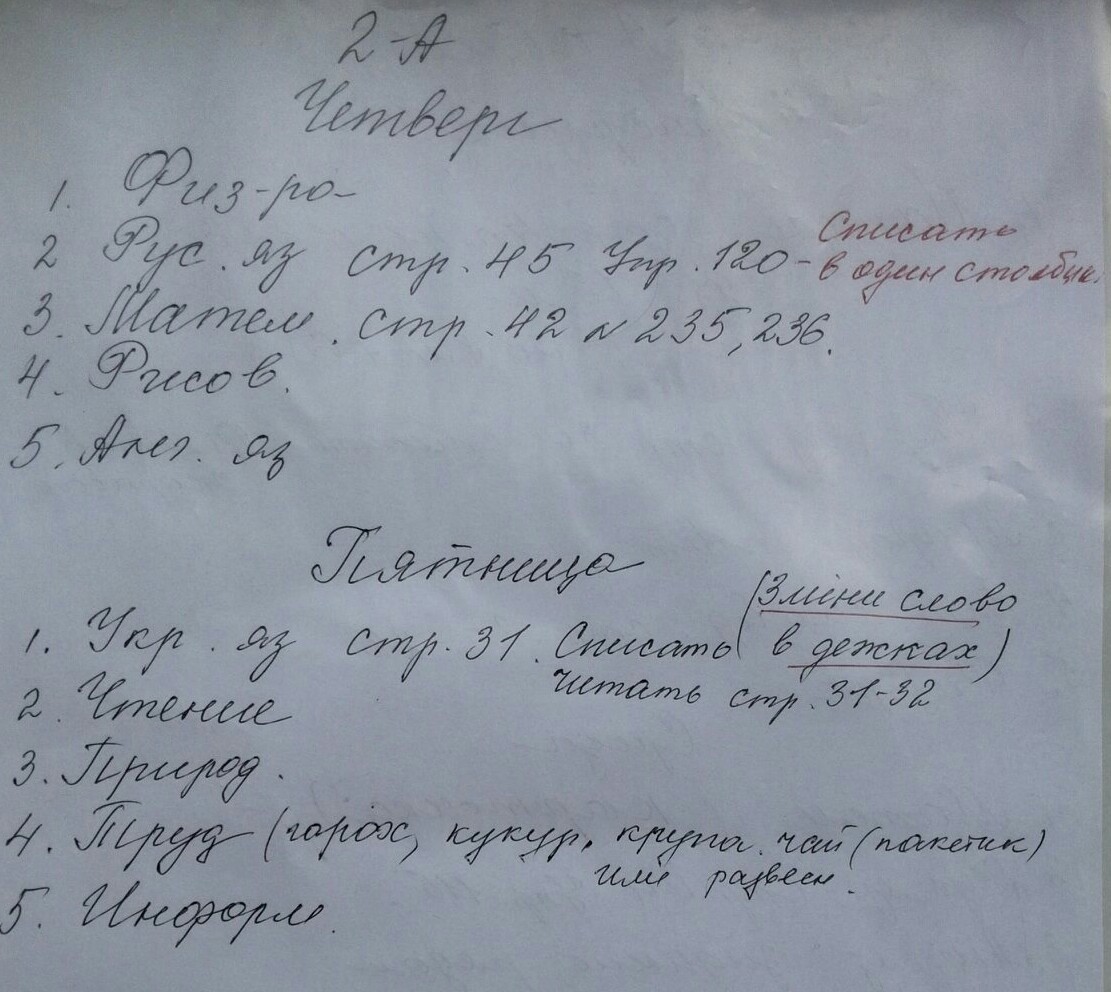 2-А
Четверг
1. Физ-ра
2 Рус. яз стр. 45 Упр. 120 - Списать
в один столбик.
3. Матем. стр. 42 № 235, 236.
4. Рисов.
5. Анг. яз
Пятница
1. Укр. яз стр. 31. Списать (Зміни слово
в дежках)
Читать стр. 31-32
2. Чтение
3. Природ.
4. Труд (горох, кукур, крупа. чай (пакетик)
или развесн.
5. Информ.